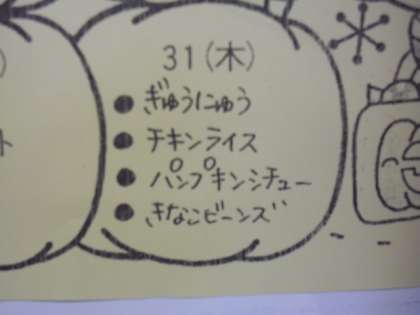 31(木)
● ぎゅうにゅう
● チキンライス
● パンプキンシチュー
● きなこビーンズ
)
ト